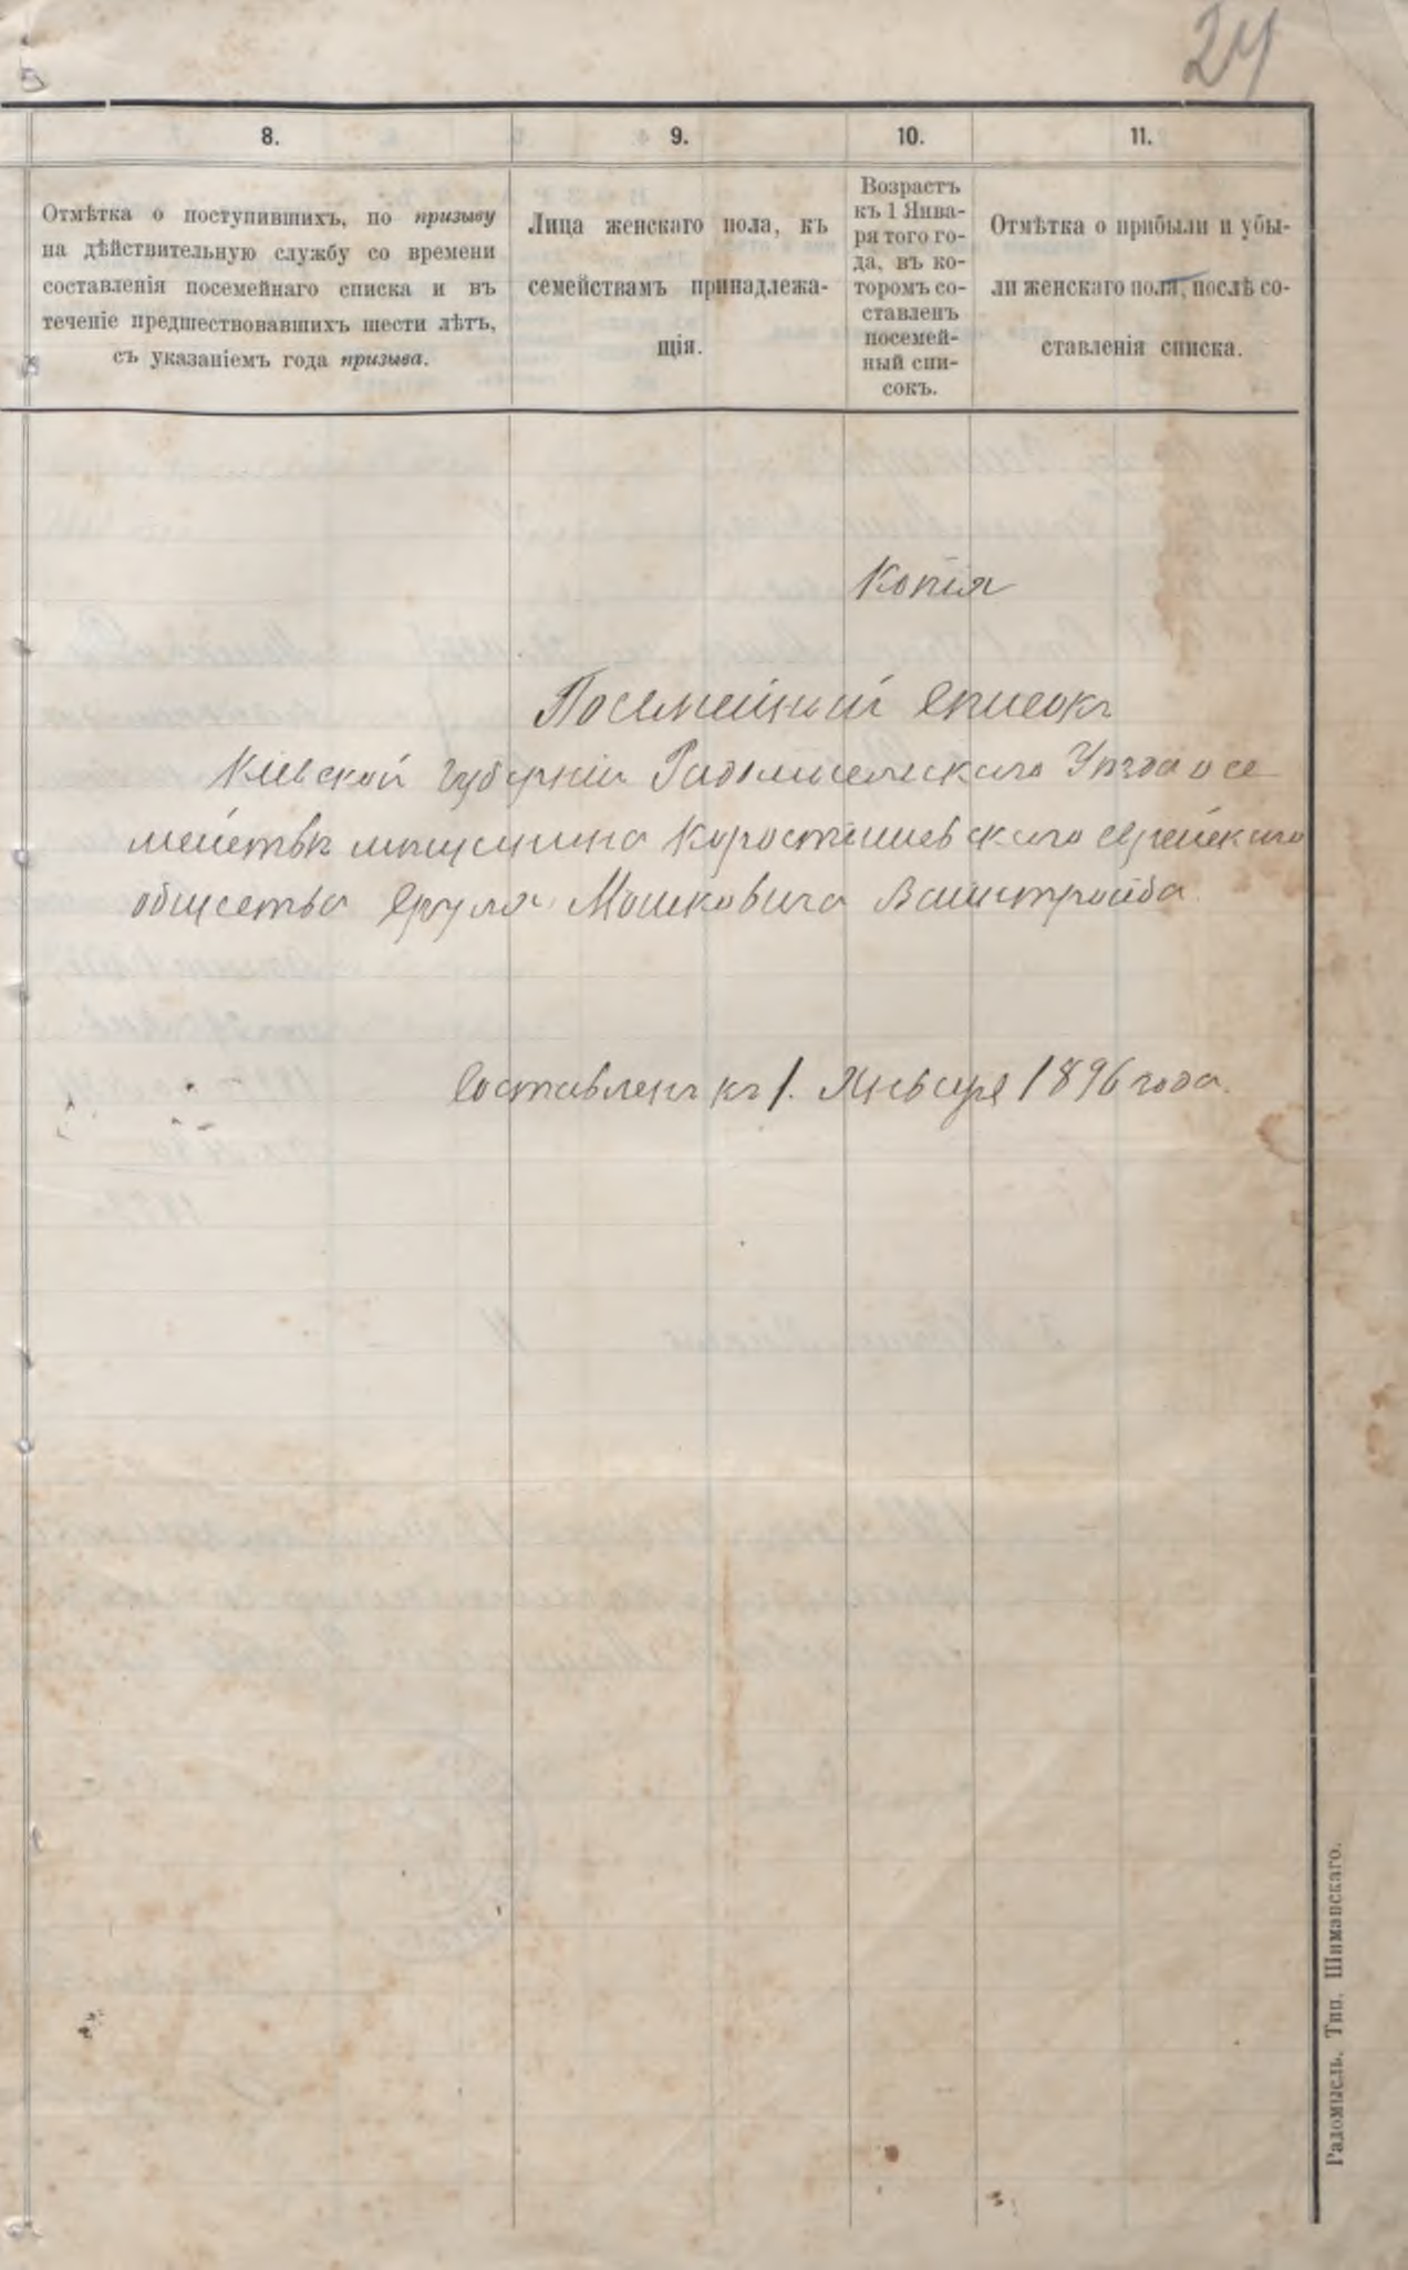 24
8.
9.
10.
11.
Отмѣтка о поступившихъ, по призыву
на дѣйствительную службу со времени
составленія посемейнаго списка и въ
теченіе предшествовавшихъ шести лѣтъ,
съ указаніемъ года призыва.
Лица женскаго пола, къ
семействамъ принадлежа-
щія.
Возрастъ
къ 1 Янва-
ря того го-
да, въ ко-
торомъ со-
ставленъ
посемей-
ный спи-
сокъ.
Отмѣтка о прибыли и убы-
ли женскаго пола, послѣ со-
ставленія списка.
Копія
Посемейный Списокъ
Кіевской губерніи Радомысльскаго Уѣзда о се
мействѣ мѣщанина Коростышевскаго еврейскаго
общества Сруля Мошковича Вайнтройба
Составленъ къ 1. Января 1896 года.
Радомысль. Тип. Шиманскаго.